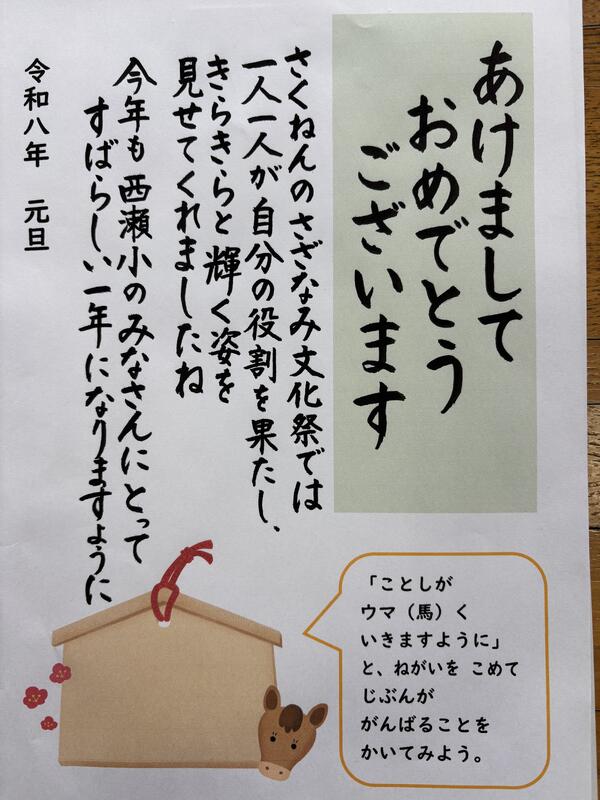 あけまして
おめでとう
ございます
さくねんのさざなみ文化祭では
一人一人が自分の役割を果たし、
きらきらと輝く姿を
見せてくれましたね
今年も西瀬小のみなさんにとって
すばらしい一年になりますように
令和八年 元旦
「ことしが
ウマ（馬）く
いきますように」
と、ねがいを こめて
じぶんが
がんばることを
かいてみよう。